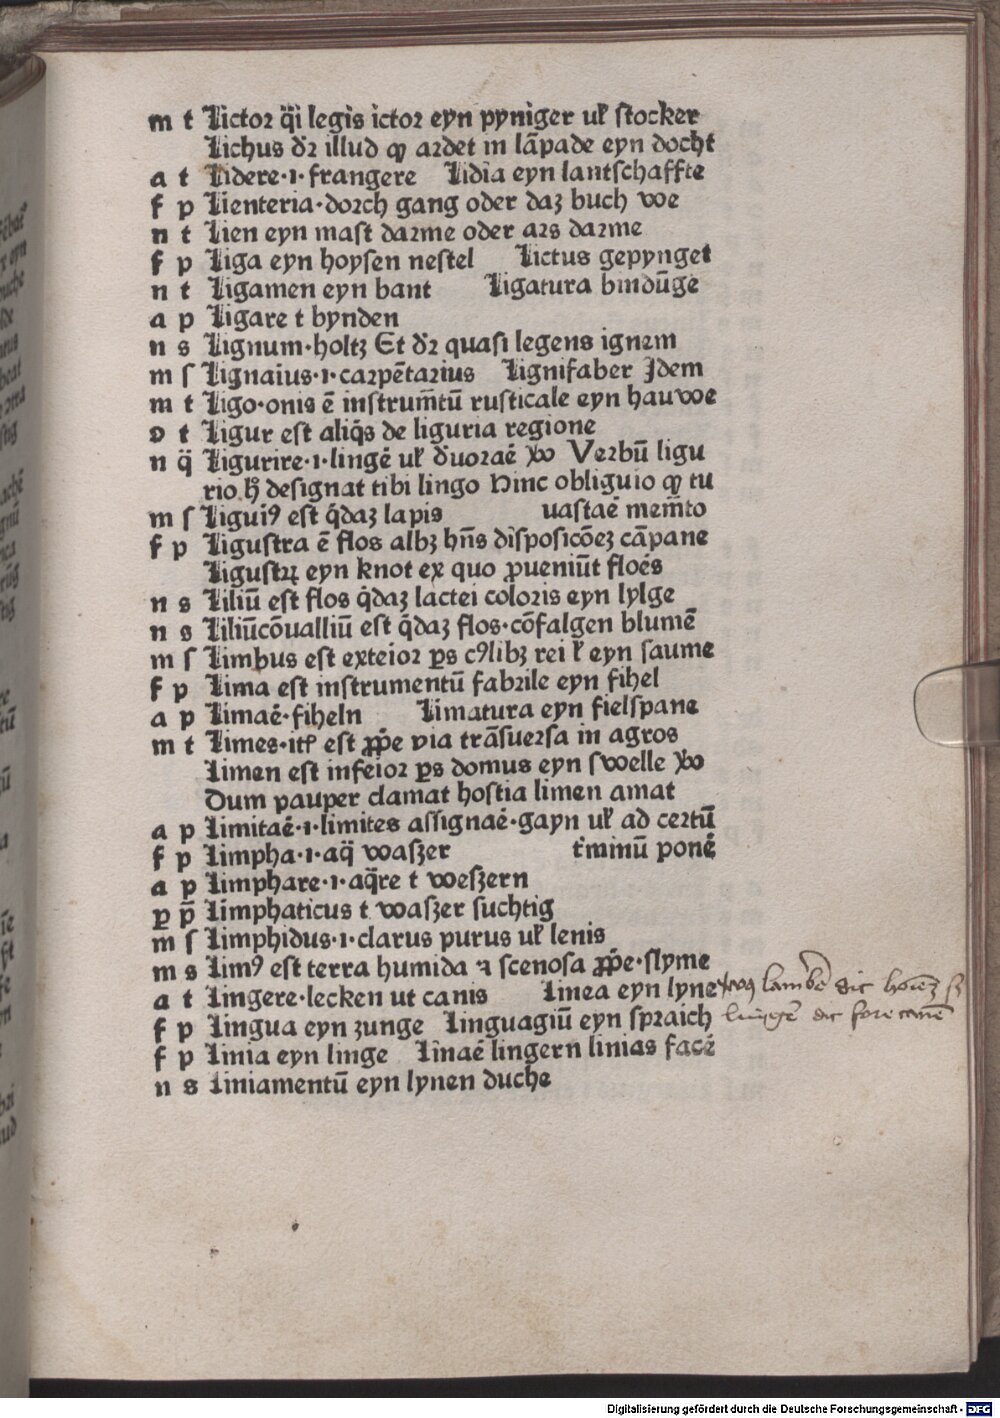 m t Lictoꝛ q̈i legis ictoꝛ eyn pyniger uł ſtocker
Lichus dꝛ̄ illud ꝙ aꝛdet in lāpade eyn docht
a t Lidere·i·frangere Lidia eyn lantſchaffte
f p Lienteria·doꝛch gang oder daz buch we
n t Lien eyn maſt daꝛme oder aꝛs daꝛme
f p Liga eyn hoyſen neſtel Lictus gepynget
n t Ligamen eyn bant Ligatura bindūge
a p Ligare t bynden
n s Lignum·holtz Et dꝛ̄ quaſi legens ignem
m ſ Lignaius·i·caꝛpētaꝛius Lignifaber Jdem
m t Ligo·onis ē inſtrum̄tū ruſticale eyn hauwe
o t Ligur eſt aliq̇s de liguria regione
n q̈ Ligurire·i·linge᷑ uł d᷑uoꝛae᷑ Verbū ligu
rio hͥ deſignat tibi lingo Hinc obliguio ꝙ tu
m ſ Liguiꝰ eſt q̇daz lapis uaſtae᷑ mem̄to
f p Liguſtra ē flos albꝫ hn̄s diſpoſicōez cāpane
Liguſtꝝ eyn knot ex quo ꝓueniūt floe᷑s
n s Liliū eſt flos q̇daz lactei coloꝛis eyn lylge
n s Liliūcōualliū eſt q̇daz flos·cōfalgen blumē
m ſ Limbus eſt exteioꝛ ꝑs cꝰlibꝫ rei ł eyn ſaume
f p Lima eſt inſtrumentū fabꝛile eyn fihel
a p Limae᷑·fiheln Limatura eyn fielſpane
m t Limes·itꝭ eſt ꝓp̄e via trāſueꝛſa in agros
Limen eſt infeioꝛ ꝑs domus eyn ſwelle
Dum pauper clamat hoſtia limen amat
a p Limitae᷑·i·limites aſſignae᷑·gayn uł ad ceꝛtū
f p Limpha·i·aq̈ waſzer t᷑minū pone᷑
a p Limphare·i·aq̈re t weſzern
ꝑ p̄ Limphaticus t waſzer ſuchtig
m ſ Limphidus·i·clarus purus uł lenis
m s Limꝰ eſt terra humida ⁊ ſcenoſa ꝓp̄e·ſlyme
a t Lingere·lecken ut canis Linea eyn lyne
f p Lingua eyn zunge Linguagiū eyn ſpꝛaich
f p Linia eyn linge Linae᷑ lingern linias face᷑
n s Liniamentū eyn lynen duche
Digitalisierung gefördert durch die Deutsche Forschungsgemeinschaft - DFG